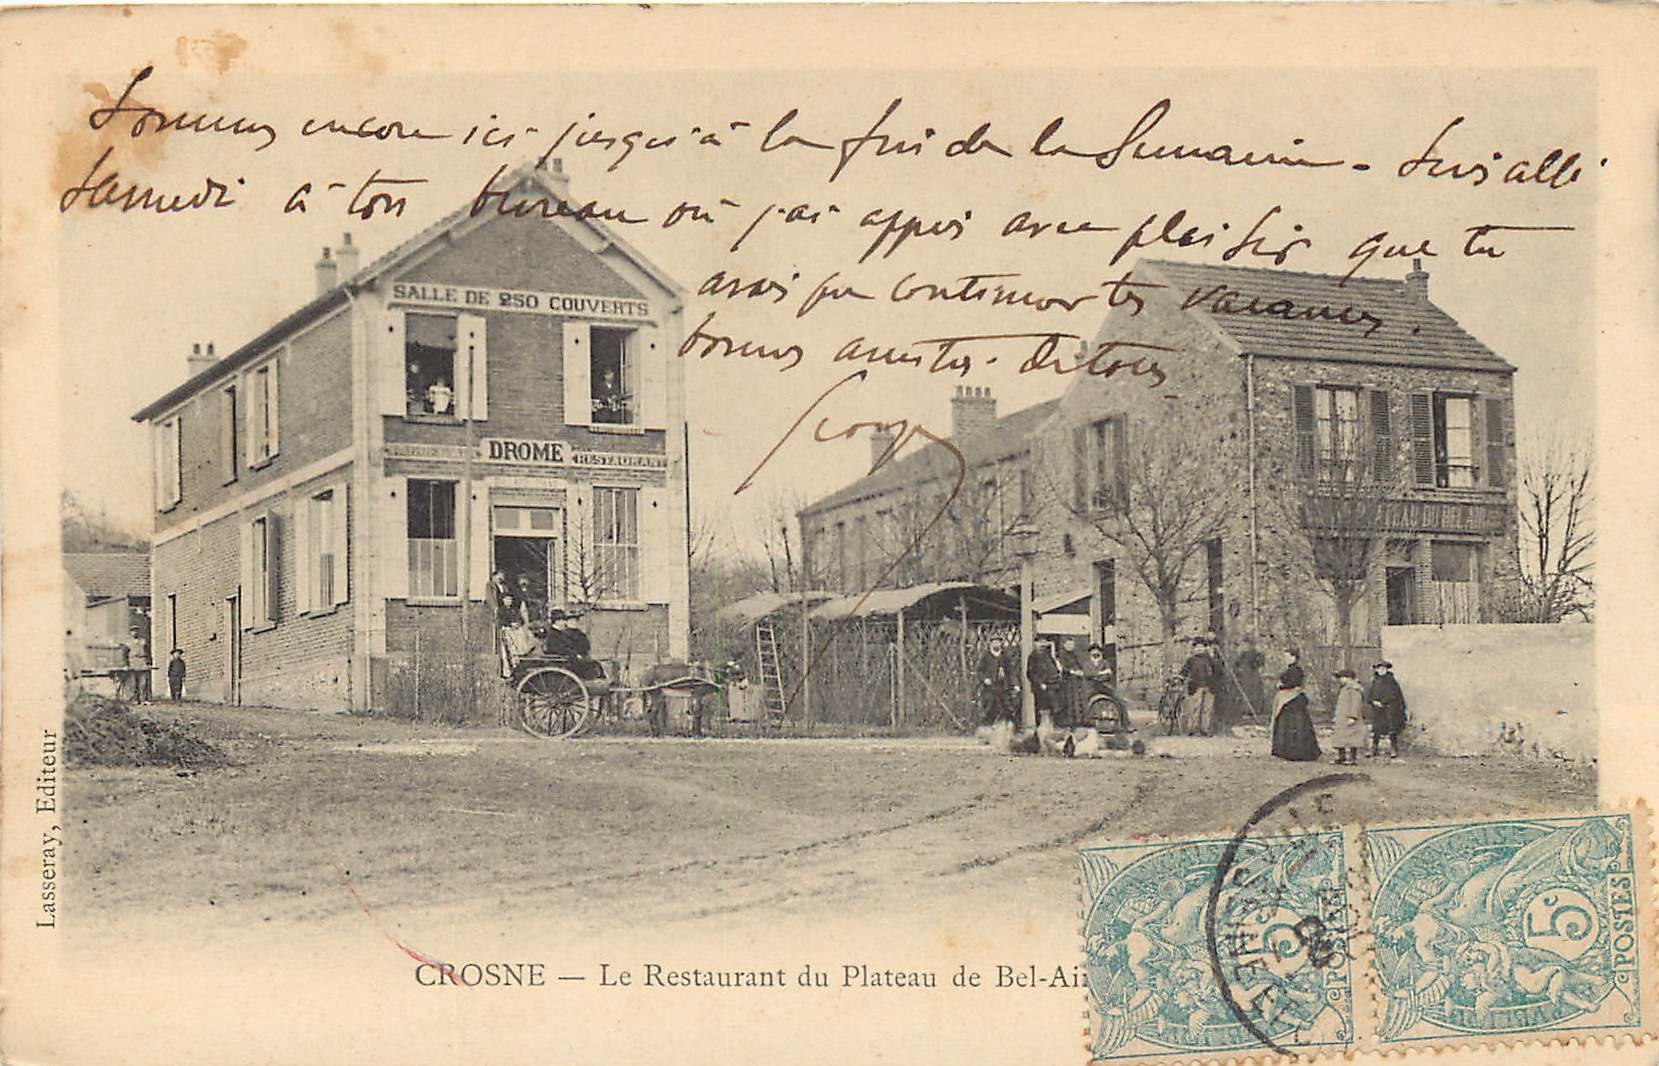 Sommes encore ici jusqu'à la fin de la Semaine - Suis allé
Samedi à ton bureau où j'ai appris avec plaisir que tu
avais pu continuer tes vacances.
bonnes amitiés de tous
SALLE DE 250 COUVERTS
DROME
RESTAURANT
DU BEL-AIR
Lasseray, Editeur
CROSNE — Le Restaurant du Plateau de Bel-Air
5c
POSTES
5c
POSTES